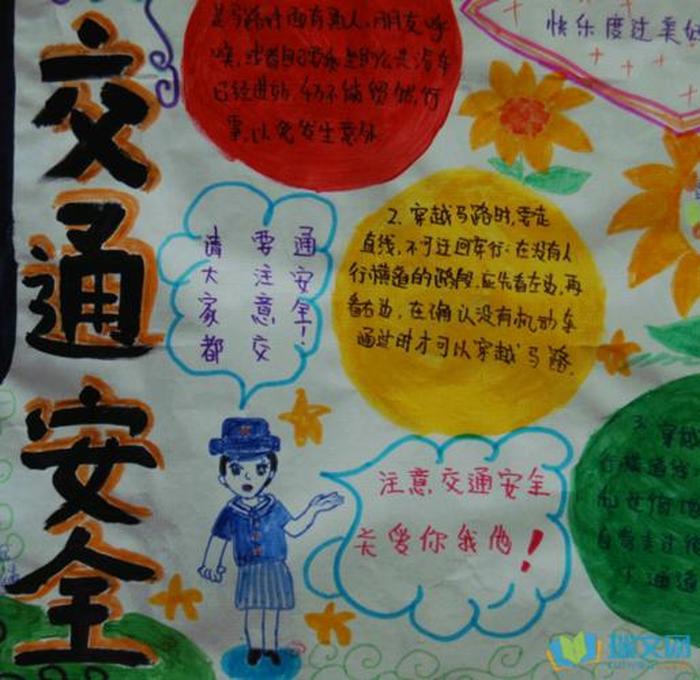 交通安全
是马路对面有熟人、朋友呼
唤,或者自己要乘坐的公共汽车
已经进站,千万不能贸然行
事,以免发生意外
快乐度过美好
请大家都
要注意交
通安全!
2. 穿越马路时,要走
直线,不可迂回穿行;在没有人
行横道的路段,应先看左边,再
看右边,在确认没有机动车
通过时才可以穿越马路.
注意交通安全
关爱你我他!
3. 穿越
行横道